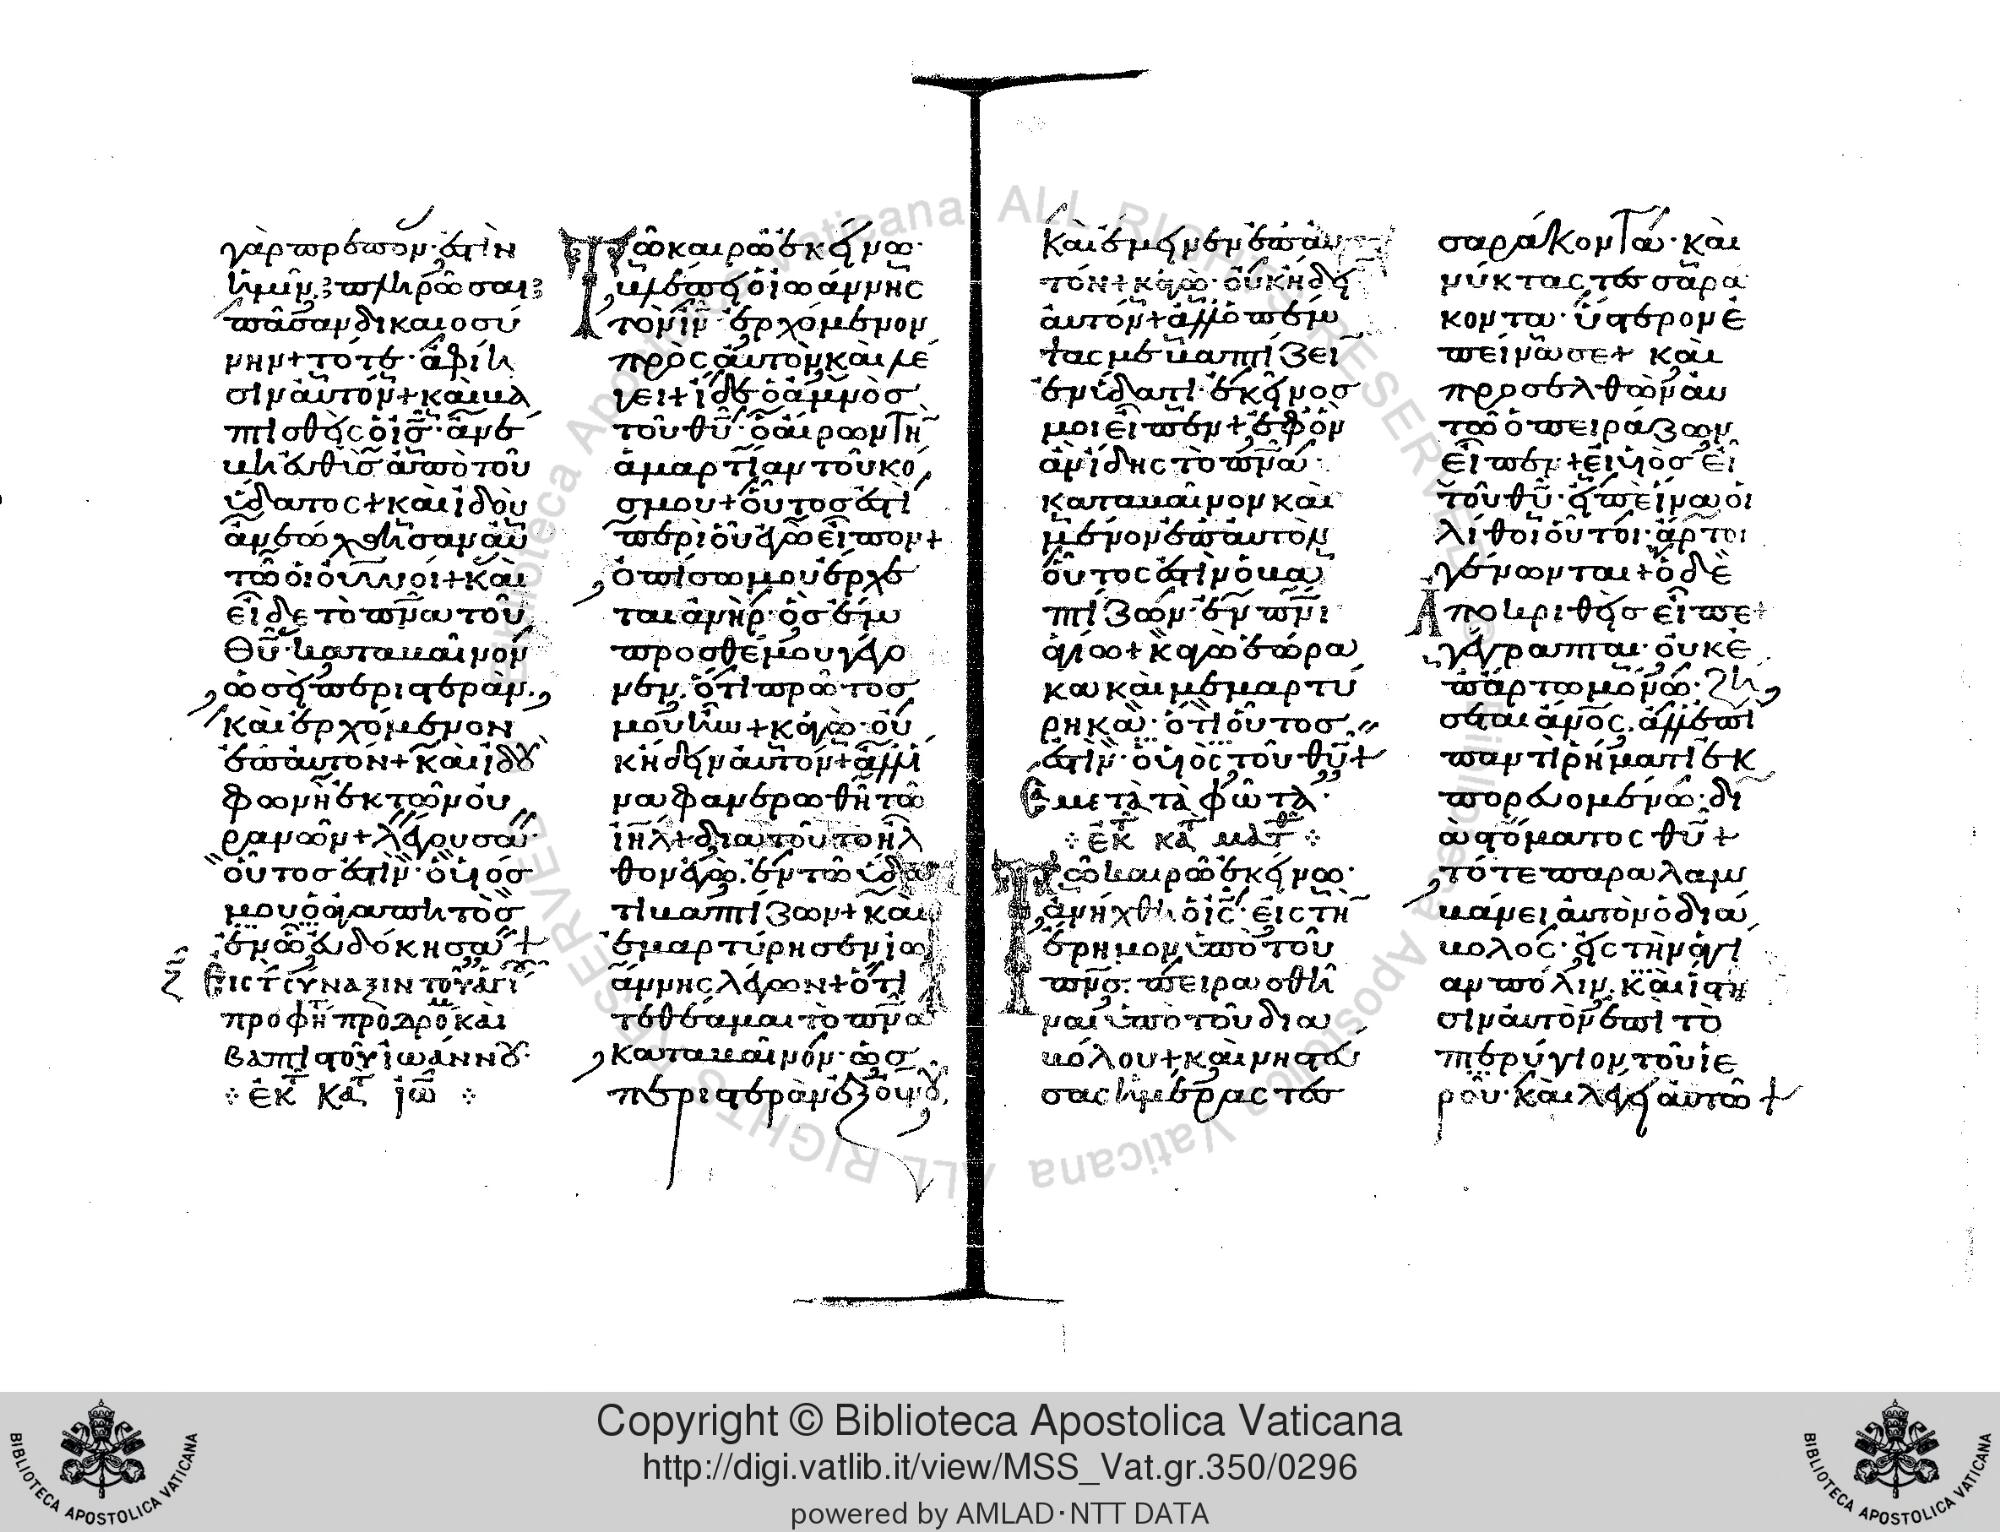 γὰρ πρέπον· ἐστὶν
ἡμῖν πληρῶσαι
πᾶσαν δικαιοσύ
νην + τότε· ἀφίη
σιν αὐτόν + καὶ βα
πτισθεὶς ὁ ἰς· ἀνέ
βη εὐθὺς ἀπὸ τοῦ
ὕδατος + καὶ ἰδοὺ
ἀνεώχθησαν αὐ
τῶ οἱ οὐνοι + καὶ
εἶδε τὸ πνα τοῦ
θυ· καταβαῖνον
ὡσεὶ περιστεράν.
καὶ ἐρχόμενον
ἐπ αὐτόν + καὶ ἰδοὺ
φωνὴ ἐκ τῶν οὐ
ρανῶν + λέγουσα·
οὗτος ἐστὶν· ὁ υἱός
μου ὁ ἀγαπητὸς
ἐν ᾧ εὐδόκησα +
Εἰς τ σύναξιν τοῦ ἁγί
προφη προδρό καὶ
βαπτιστοῦ ἰωάννου·
ἐκ κα ἰω
Τῶ καιρῶ ἐκείνω·
βλέπει ὁ ἰωάννης
τὸν ἰν ἐρχόμενον
πρὸς αὐτὸν καὶ λέ
γει + ἴδε ὁ ἀμνὸς
τοῦ θυ· ὁ αἴρων τὴ
ἁμαρτίαν τοῦ κό
σμου + οὗτος ἐστὶ
περὶ οὗ ἐγὼ εἶπον +
ὀπίσω μου ἔρχε
ται ἀνὴρ· ὃς ἔμ
προσθέν μου γέγο
νεν. ὅτι πρῶτος
μου ἦν + κἀγὼ· οὐ
κ ἤδειν αὐτόν + ἀλλ ἵ
να φανερωθῆ τῶ
ἰηλ + διατοῦτο ἦλ
θον ἐγὼ. ἐν τῶ ὕδα
τι βαπτίζων + καὶ
ἐμαρτύρησεν ἰω
άννης λέγων + ὅτι
τεθέαμαι τὸ πνα
καταβαῖνον· ὡς
περιστερὰν ἐξ οὐνοῦ,
καὶ ἔμεινεν ἐπ αὐ
τόν + κἀγὼ· οὐκ ἤδει
αὐτόν + ἀλλ ὁ πέμ
ψας με βαπτίζειν
ἐν ὕδατι· ἐκεῖνος
μοι εἶπεν + ἐφ ὃν
ἂν ἴδης τὸ πνα·
καταβαῖνον καὶ
μένον ἐπ αὐτὸν
οὗτος ἐστὶν ὁ βα
πτίζων· ἐν πνι
ἁγίω + κἀγὼ ἑώρα
κα καὶ μεμαρτύ
ρηκα· ὅτι οὗτος
ἐστὶν· ὁ υἱὸς τοῦ θυ +
μετὰ τὰ φῶτα·
ἐκ κα ματθ
Τῶ καιρῶ ἐκείνω·
ἀνήχθη ὁ ἰς· εἰς τὴ
ἔρημον ὑπὸ τοῦ
πνς. πειρασθῆ
ναι ὑπὸ τοῦ δια
βόλου + καὶ νηστεύ
σας ἡμέρας τεσ
σαράκοντα· καὶ
νύκτας τεσσαρά
κοντα· ὕστερον ἐ
πείνασε + καὶ
προσελθὼν αὐ
τῶ ὁ πειράζων
εἶπεν + εἰ υἱὸς εἶ
τοῦ θυ· εἰπὲ ἵνα οἱ
λίθοι οὗτοι· ἄρτοι
γένωνται + ὁ δὲ
ἀποκριθεὶς εἶπε +
γέγραπται· οὐκ ἐ
π ἄρτω μόνω· ζή
σεται ἄνος. ἀλλ ἐπὶ
παντὶ ῥήματι ἐκ
πορευομένω· δι
ὰ στόματος θυ +
τότε παραλαμ
βάνει αὐτὸν ὁ διά
βολος· εἰς τὴν ἁγί
αν πόλιν. καὶ ἵστη
σιν αὐτὸν ἐπὶ τὸ
πτερύγιον τοῦ ἱε
ροῦ· καὶ λέγει αὐτῶ +
Copyright © Biblioteca Apostolica Vaticana
http://digi.vatlib.it/view/MSS_Vat.gr.350/0296
powered by AMLAD·NTT DATA
BIBLIOTECA APOSTOLICA VATICANA
BIBLIOTECA APOSTOLICA VATICANA